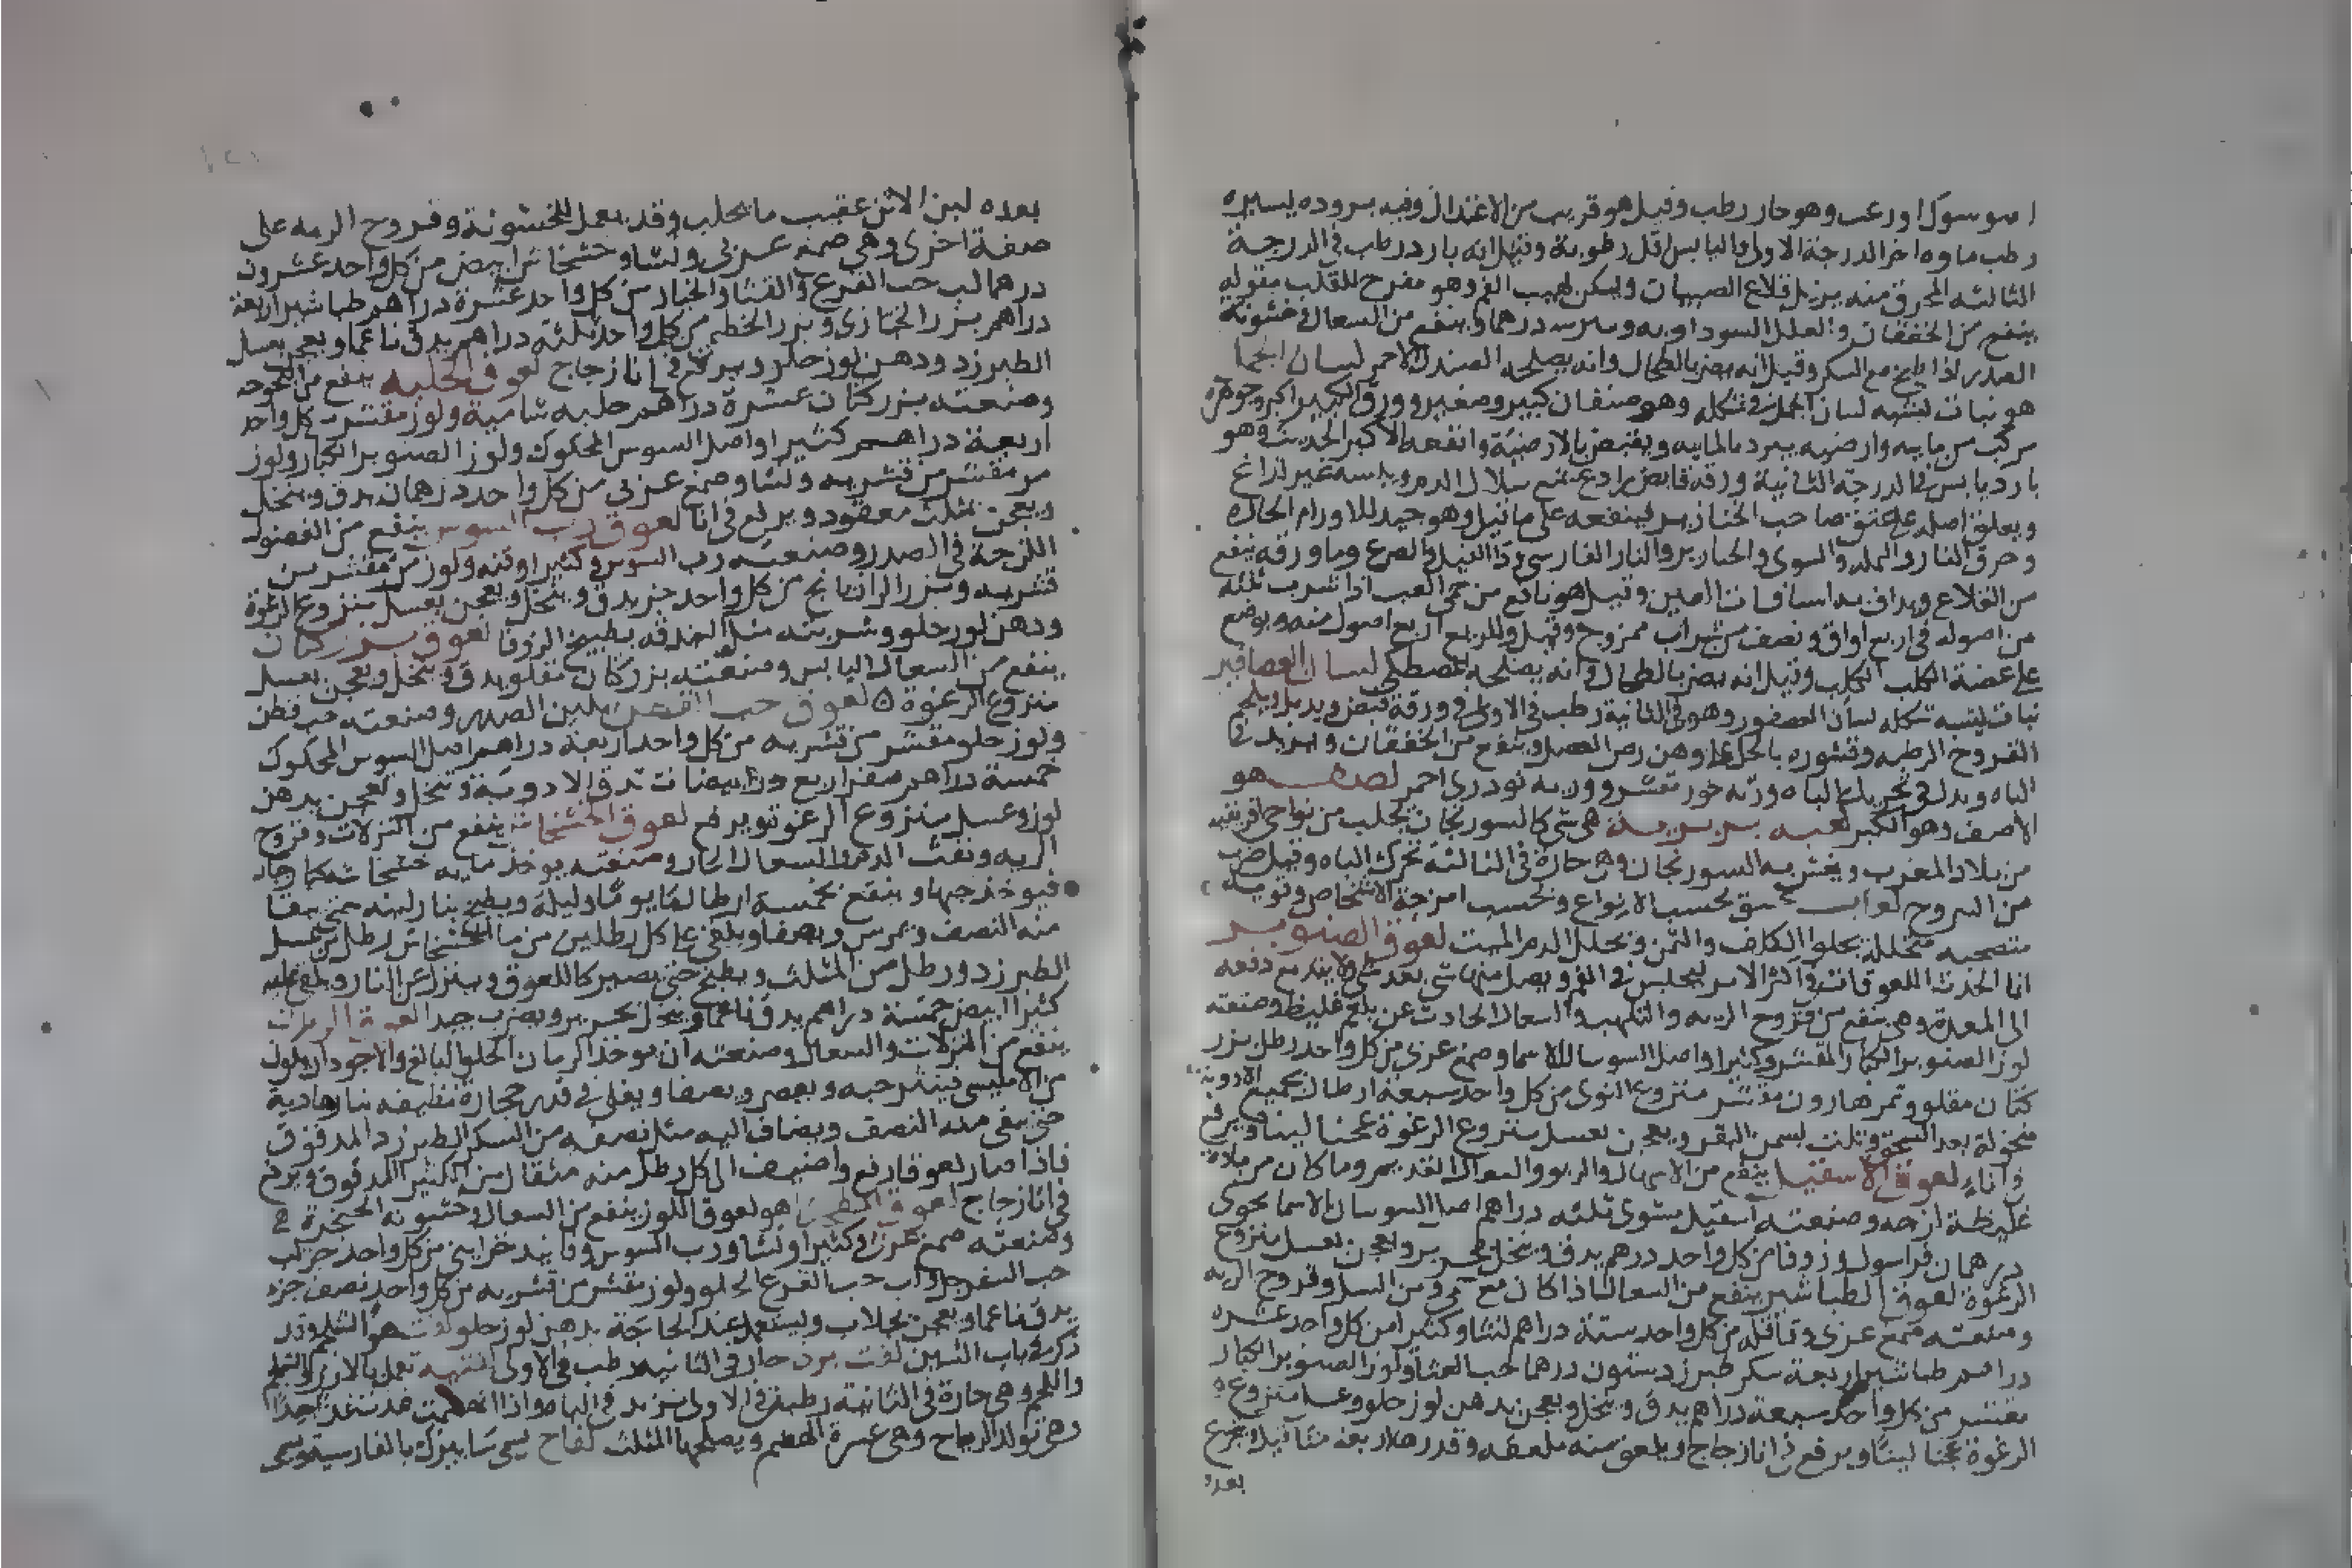 رطب وقيل هو قريب من الاعتدال وفيه بروده يسيره
رطب ماوه اخر الدرجة الاولى واليابس اقل رطوبة وقيل انه بارد رطب في الدرجة
الثالثه المحرق منه يزيل قلاع الصبيان ويسكن لهيب الفم وهو مفرح للقلب مقوله
ينفع من الخفقان والعلل السوداويه درهما وينفع من السعال وخشونة
الصدر اذا طبخ مع السكر وقيل انه يضر بالطحال وانه يصلحه الصندل الاحمر لسان الحمل
هو نبات يشبه لسان الحمل في شكله وهو صنفان كبير وصغير وورق الكبير اكبر وجوهره
مركب من مايه وارضيه يبرد بالمايه ويقبض بالارضية وانفعه الاكبر الحديث وهو
بارد يابس في الدرجة الثانية ورقه قابض رادع يمنع سيلان الدم ويبسه غير لذاع
ويعلق اصله على عنق صاحب الخنازير لينفعه على ما قيل وهو جيد للاورام الحاره
وحرق النار والنار الفارسي وذا الفيل والصرع وماورقه ينفع
من القلاع وقيل هو نافع من حمى الغب اذا شرب ثلثه
من اصوله في اربع اواق ونصف من شراب ممزوج وقيل وللربع اربع اصول منه ويوضع
على عضة الكلب الكلب وقيل انه يضر بالطحال وانه يصلحه المصطكي لسان العصافير
نبات يشبه شكله لسان العصفور وهو في الثانية رطب في الاولى وفي ورقه قبض ويدمل
القروح الرطبه وقشوره بالخل وينفع من الخفقان ويزيد في
الباه وبدله في تحريك الباه وزنه جوز مقشر ووزنه تودري احمر لصف هو
الاصف وهو الكبر لعبه بربريه هي شي كالسورنجان يجلب من نواحي افريقيه
من بلاد المغرب ويغش به السورنجان وهي حارة في الثالثة تحرك الباه وقيل ضرب
من اليبروح لعاب بحسب الانواع وبحسب امزجة الاشخاص
محلله يجلوا الكلف والنمش ويحلل الدم الميت لعوق الصنوبر
انما اتخذت اللعوقات في اكثر الامر ليحبس في الفم ويصل منها شي بعد شي ولا يندفع دفعه
الى المعدة وهي ينفع من قروح الريه والتلهب والسعال الحادث عن بلغم غليظ وصنعته
لوز الصنوبر الكبار المقشر وكثيرا واصل السوسان الاسما وصمغ عربي من كل واحد رطل بزر
كتان مقلو وتمر هارون مقشر منزوع النوى من كل واحد سبعة ارطال يجمع الادوية
منخولة بعد السحق وتلت بسمن البقر ويعجن بعسل منزوع الرغوة عجنا لينا ويرفع
في اناء لعوق الاسقيل ينفع من والربو والسعال القديم وما كان من مادة
غليظة لزجه وصنعته اسقيل مشوي ثلثه دراهم اصل السوسان الاسما نجوى
درهمان فراسيون وزوفا من كل واحد درهم يدق وينخل بحرير ويعجن بعسل منزوع
الرغوة لعوق الطباشير ينفع من السعال اذا كان مع حمى ومن السل وقروح الريه
وصنعته صمغ عربي وقاقله من كل واحد ستة دراهم نشا وكثيرا من كل واحد عشره
دراهم طباشير اربعة سكر طبرزد ستون درهما لب القثا ولوز الصنوبر الكبار
مقشر من كل واحد سبعة دراهم يدق وينخل ويعجن بدهن لوز حلو وعسل منزوع
الرغوة عجنا لينا ويرفع في انا زجاج ويلعق منه ملعقه وقدرها اربعة مثاقيل ويجرع
بعده
بعده لبن الاتن عقيب ما يحلب وقد يعمل للخشونة وقروح الريه على
صفة اخرى وهي صمغ عربي ونشا وخشخاش ابيض من كل واحد عشرون
درهما لب حب القرع والقثا والخيار من كل واحد عشرة دراهم طباشير اربعة
دراهم بزر الخبازى وبزر الخطمي من كل واحد ثلثة دراهم يدق ناعما ويعجن بعسل
الطبرزد ودهن لوز حلو ويرفع في انا زجاج لعوق الحلبه ينفع من البحوحه
وصنعته بزر كتان عشرة دراهم حلبه شامية ولوز مقشر من كل واحد
اربعة دراهم كثيرا واصل السوس المحكوك ولوز الصنوبر الكبار ولوز
مر مقشر من قشريه ونشا وصمغ عربي من كل واحد درهمان يدق وينخل
ويعجن بمثلث معقود ويرفع في انا لعوق رب السوس ينفع من الفضول
اللزجة في الصدر وصنعته رب السوس وكثيرا وقنه ولوز مر مقشر من
قشريه وبزر الرازيانج من كل واحد جز يدق وينخل ويعجن بعسل منزوع الرغوة
ودهن لوز حلو وشربته مثل البندقه بطبيخ الزوفا لعوق بزر كتان
ينفع من السعال اليابس وصنعته بزر كتان مقلو يدق وينخل ويعجن بعسل
منزوع الرغوة لعوق حب القطن يلين الصدر وصنعته حب قطن
ولوز حلو مقشر من قشريه من كل واحد اربعة دراهم اصل السوس المحكوك
خمسة دراهم صفرا اربع بيضات تدق الادوية وتنخل وتعجن بدهن
لوز وعسل منزوع الرغوة ويرفع لعوق الخشخاش ينفع من النزلات وقروح
الريه ونفث الدم والسعال الحار وصنعته يوخذ مايه خشخاشه كبار
فيوخذ حبها وينقع بخمسة ارطال ما يوما وليلة ويطبخ بنار لينه حتى يبقا
منه النصف ويمرس ويصفا ويلقى على كل رطلين من ما الخشخاش رطل من عسل
الطبرزد ورطل من المثلث ويطبخ حتى يصير كاللعوق وينزل عن النار ويلقى عليه
كثيرا ابيض خمسة دراهم يدق ناعما وينخل بحرير ويضرب جيدا لعوق الرمان
ينفع من النزلات والسعال وصنعته ان يوخذ الرمان الحلو البالغ والاجود ان يكون
من الامليسي فينثر حبه ويعصر ويصفا ويغلى في قدر حجارة نظيفه بنار هادية
حتى يبقى منه النصف ويضاف اليه مثل نصفه من السكر الطبرزد المدقوق
فاذا صار لعوقا رفع واضيف الى كل رطل منه مثقال من الكثيرا المدقوق ويرفع
في انا زجاج لعوق هو لعوق اللوز ينفع من السعال وخشونه الحنجرة
وصنعته صمغ عربي وكثيرا ونشا ورب السوس وفانيد خزايني من كل واحد جز لب
حب السفرجل ولب حب القرع الحلو ولوز مقشر من قشريه من كل واحد نصف جزء
يدق ناعما ويعجن بجلاب ويستعمل عند الحاجة بدهن لوز حلو لفت هو الشلجم وقد
ذكر في باب الشين لفت برى حار في الثانيه رطب في الاولى تعمل بالارز
واللحم وهي حارة في الثانية رطبة في الاولى يزيد في الباه واذا انهضمت غذت غذا جيدا
وهي تولد الرياح وهي عسرة الهضم ويصلحها المثلث لفاح يسمى سابيزك بالفارسية ويسمى